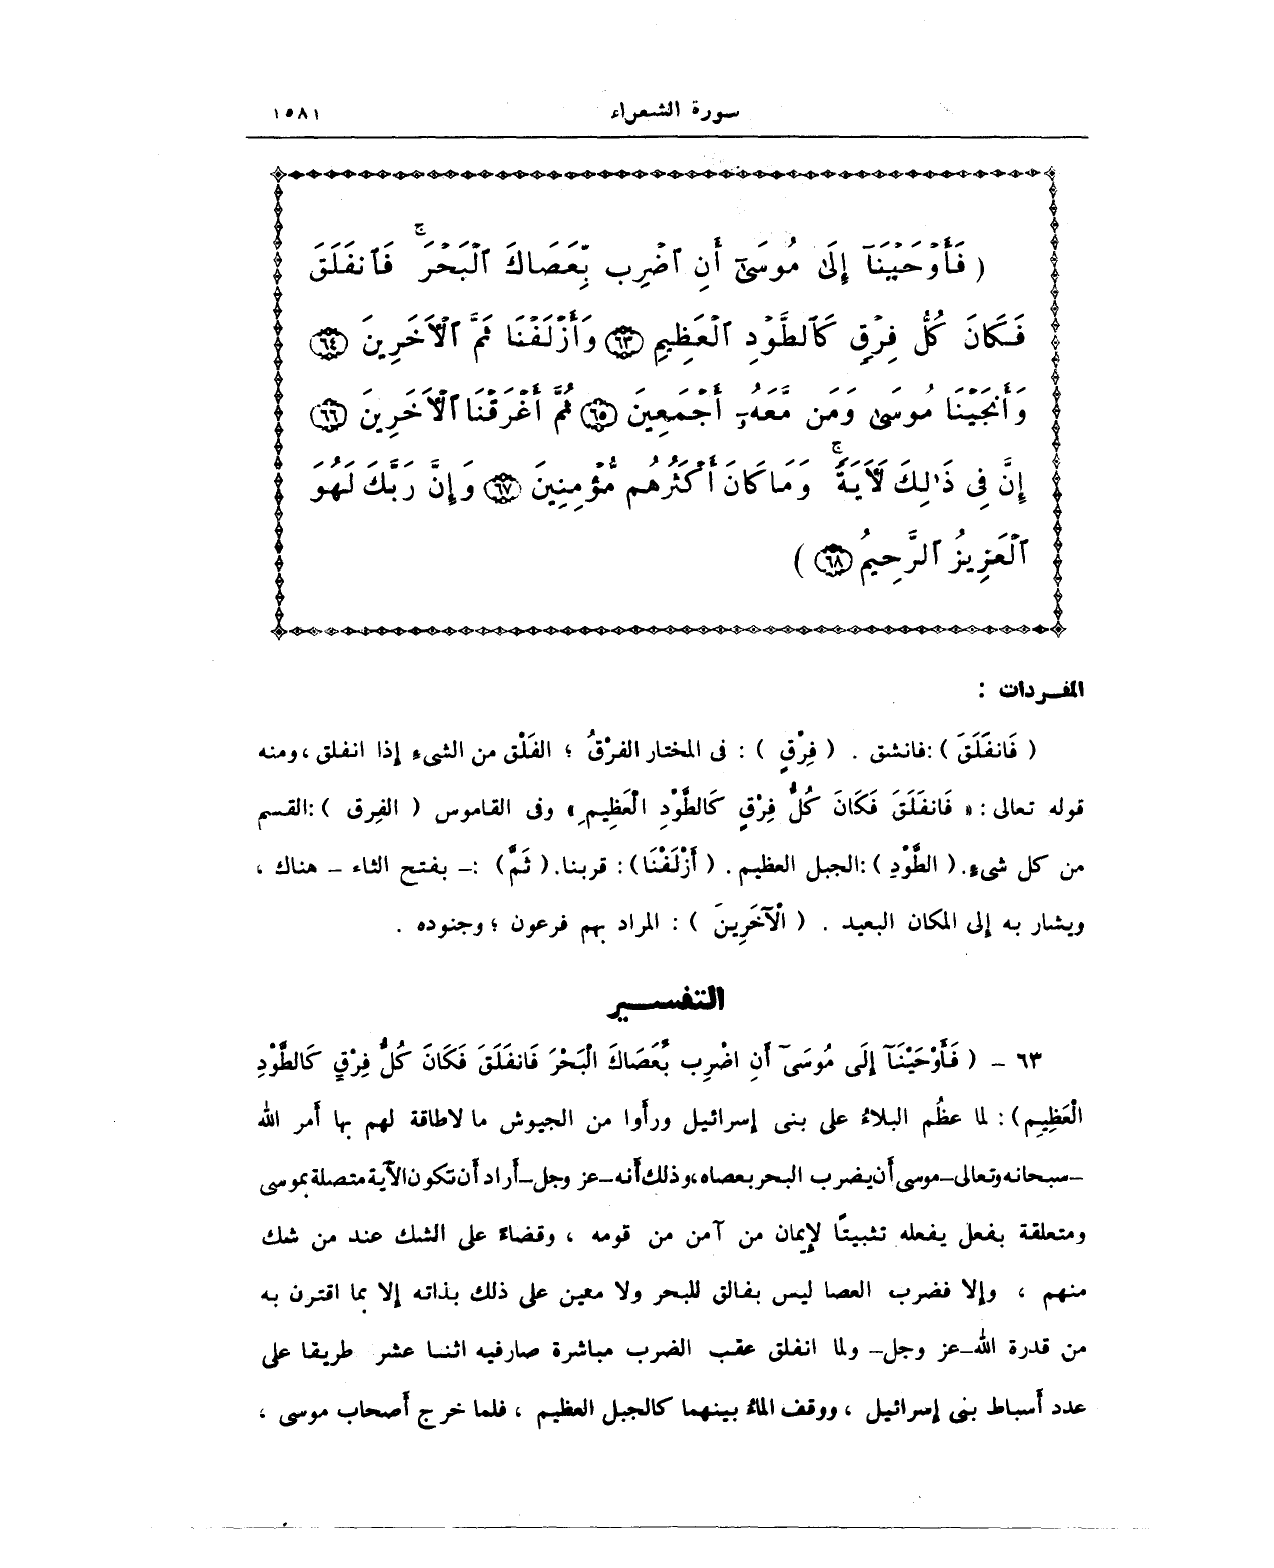 سورة الشعراء ١٥٨١
( فَأَوْحَيْنَآ إِلَىٰ مُوسَىٰٓ أَنِ ٱضْرِب بِّعَصَاكَ ٱلْبَحْرَ ۖ فَٱنفَلَقَ
فَكَانَ كُلُّ فِرْقٍ كَٱلطَّوْدِ ٱلْعَظِيمِ ٦٣ وَأَزْلَفْنَا ثَمَّ ٱلْآخَرِينَ ٦٤
وَأَنجَيْنَا مُوسَىٰ وَمَن مَّعَهُۥٓ أَجْمَعِينَ ٦٥ ثُمَّ أَغْرَقْنَا ٱلْآخَرِينَ ٦٦
إِنَّ فِى ذَٰلِكَ لَآيَةً ۚ وَمَا كَانَ أَكْثَرُهُم مُّؤْمِنِينَ ٦٧ وَإِنَّ رَبَّكَ لَهُوَ
ٱلْعَزِيزُ ٱلرَّحِيمُ ٦٨ )
المفـردات :
( فَانفَلَقَ ) :فانشق . ( فِرْقٍ ) : فى المختار الفِرْقُ ؛ الفَلْق من الشىء إذا انفلق ، ومنه
قوله تعالى : « فَانفَلَقَ فَكَانَ كُلُّ فِرْقٍ كَالطَّوْدِ الْعَظِيمِ » وفى القاموس ( الفِرق ) :القسم
من كل شىءٍ. ( الطَّوْدِ ) :الجبل العظيم . ( أَزْلَفْنَا) : قربنا. ( ثَمَّ ) :ــ بفتح الثاء ــ هناك ،
ويشار به إلى المكان البعيد . ( الْآخَرِينَ ) : المراد بهم فرعون ؛ وجنوده .
التفســـير
٦٣ ــ ( فَأَوْحَيْنَآ إِلَى مُوسَىٓ أَنِ اضْرِب بِّعَصَاكَ الْبَحْرَ فَانفَلَقَ فَكَانَ كُلُّ فِرْقٍ كَالطَّوْدِ
الْعَظِيمِ ) : لما عظُم البلاءُ على بنى إسرائيل ورأوا من الجيوش ما لاطاقة لهم بها أمر الله
ــ سبحانه وتعالى ــ موسى أن يضرب البحر بعصاه ، وذلك أنه ــ عز وجل ــ أراد أن تكون الآية متصلة بموسى
ومتعلقة بفعل يفعله تثبيتًا لإيمان من آمن من قومه ، وقضاءً على الشك عند من شك
منهم ، وإلا فضرب العصا ليس بفالق للبحر ولا معين على ذلك بذاته إلا بما اقترن به
من قدرة الله ــ عز وجل ــ ولما انفلق عقب الضرب مباشرة صار فيه اثنا عشر طريقا على
عدد أسباط بنى إسرائيل ، ووقف الماءُ بينهما كالجبل العظيم ، فلما خرج أصحاب موسى ،